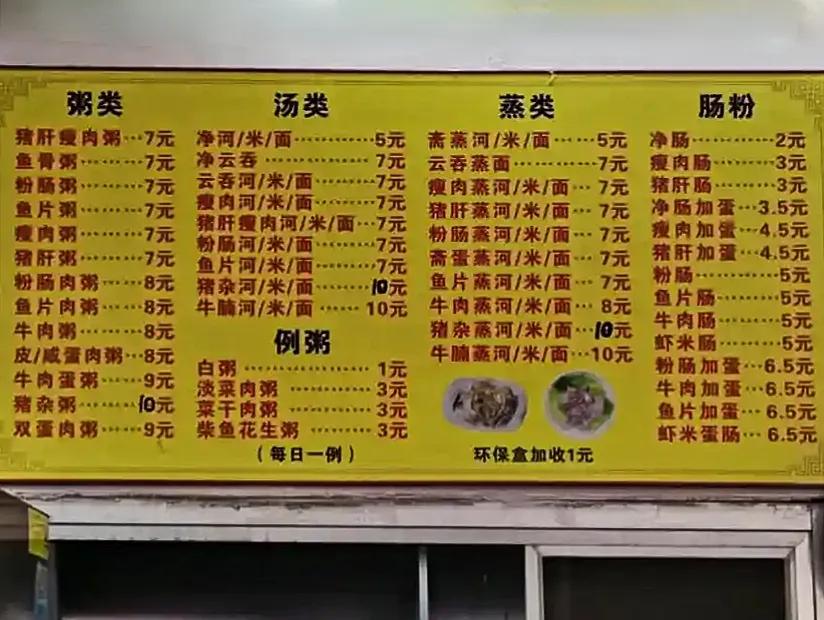 粥类
猪肝瘦肉粥…7元
鱼骨粥……7元
粉肠粥……7元
鱼片粥……7元
瘦肉粥……7元
猪肝粥……7元
粉肠肉粥…8元
鱼片肉粥…8元
牛肉粥……8元
皮/咸蛋肉粥…8元
牛肉蛋粥…9元
猪杂粥……10元
双蛋肉粥…9元
汤类
净河/米/面………5元
净云吞…………7元
云吞河/米/面……7元
瘦肉河/米/面……7元
猪肝瘦肉河/米/面…7元
粉肠河/米/面……7元
鱼片河/米/面……7元
猪杂河/米/面……10元
牛腩河/米/面……10元
例粥
白粥…………1元
淡菜肉粥………3元
菜干肉粥………3元
柴鱼花生粥……3元
(每日一例)
蒸类
斋蒸河/米/面……5元
云吞蒸面………7元
瘦肉蒸河/米/面…7元
猪肝蒸河/米/面…7元
粉肠蒸河/米/面…7元
斋蛋蒸河/米/面…7元
鱼片蒸河/米/面…7元
牛肉蒸河/米/面…8元
猪杂蒸河/米/面…10元
牛腩蒸河/米/面…10元
环保盒加收1元
肠粉
净肠…………2元
瘦肉肠………3元
猪肝肠………3元
净肠加蛋…3.5元
瘦肉加蛋…4.5元
猪肝加蛋…4.5元
粉肠…………5元
鱼片肠………5元
牛肉肠………5元
虾米肠………5元
粉肠加蛋…6.5元
牛肉加蛋…6.5元
鱼片加蛋…6.5元
虾米蛋肠…6.5元